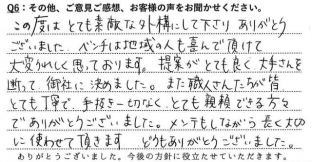 Q6：その他、ご意見ご感想、お客様の声をお聞かせください。
この度は とても素敵な外構にして下さり ありがとう
ございました。 ベンチは地域の人も喜んで頂けて
大変うれしく思っております。 提案が とても良く 大手さんを
断って 御社に 決めました。 また職人さんたちが皆
とても丁寧で、手抜き一切なく とても 信頼できる方々
で ありがとうございました。 メンテもしながら 長く大切
に使わせて 頂きます どうもありがとうございました。
ありがとうございました。今後の方針に役立たせていただきます。